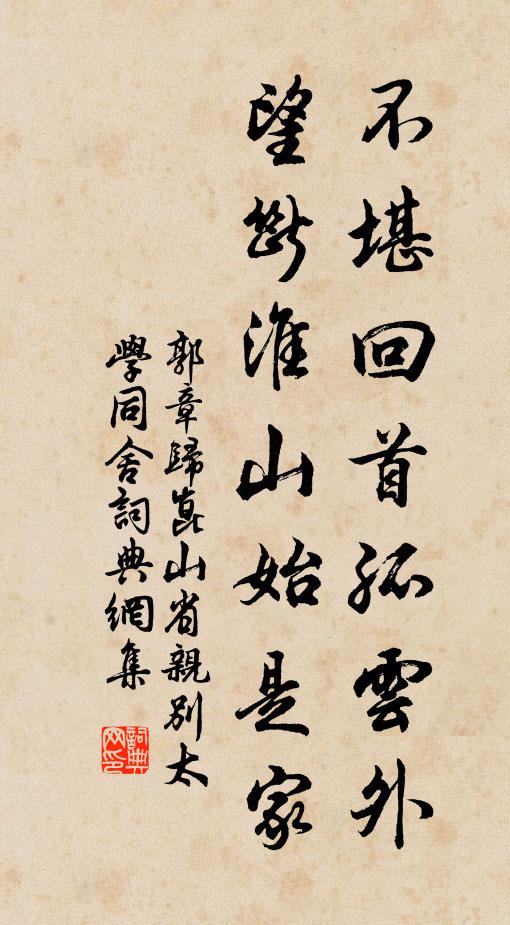 不堪回首孤雲外
望斷淮山始是家
郭章歸崑山省親別太
學同舍詞典網集
詞典
网印